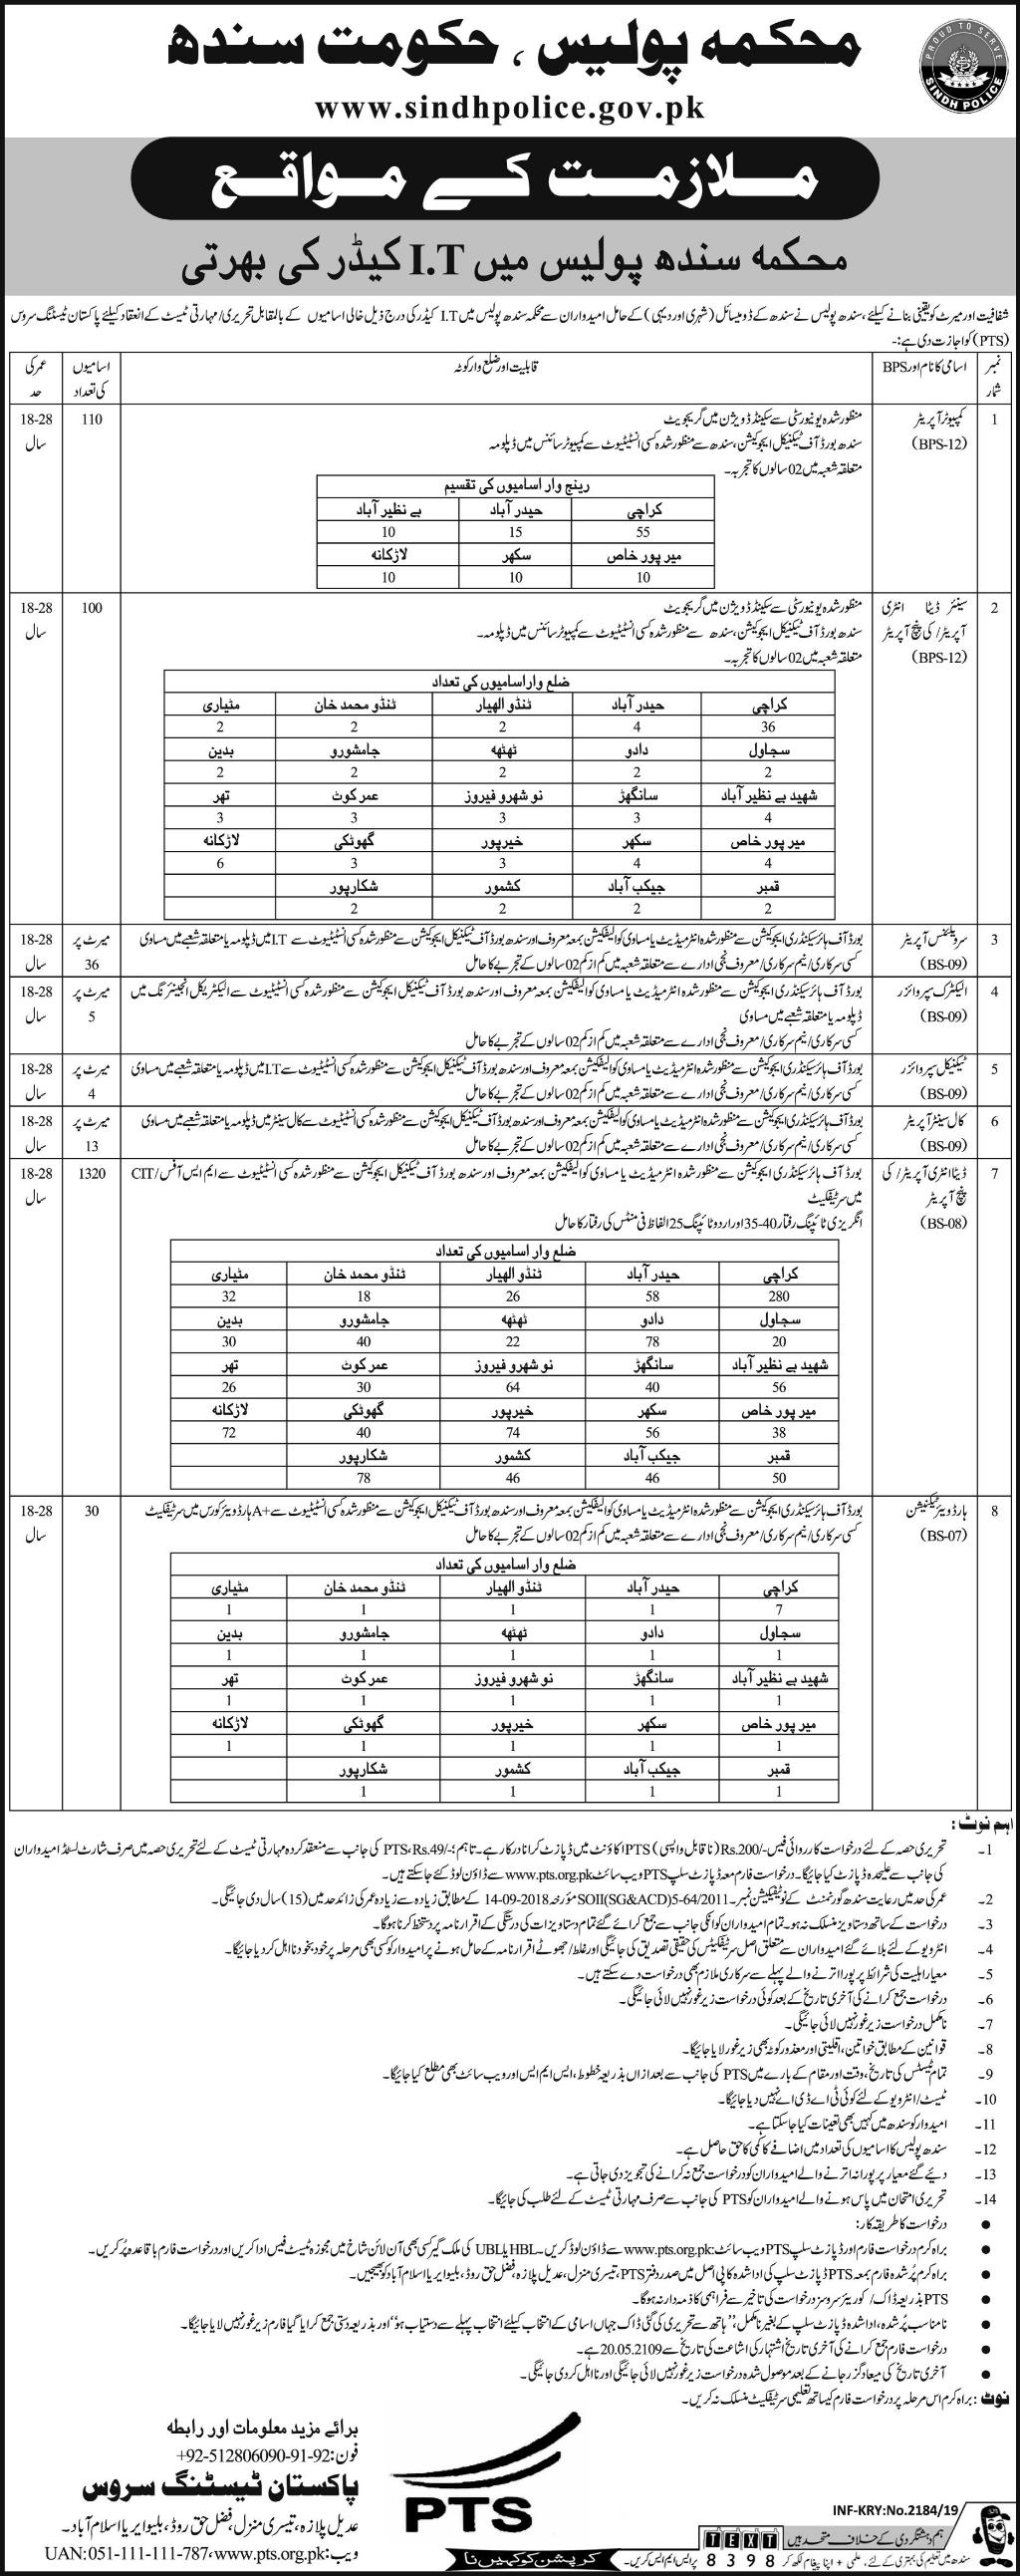 محکمہ پولیس، حکومت سندھ
PROUD TO SERVE
SINDH POLICE
www.sindhpolice.gov.pk
ملازمت کے مواقع
محکمہ سندھ پولیس میں I.T کیڈر کی بھرتی
شفافیت اور میرٹ کو یقینی بنانے کیلئے، سندھ پولیس نے سندھ کے ڈومیسائل (شہری اور دیہی) کے حامل امیدواران سے محکمہ سندھ پولیس میں I.T کیڈر کی درج ذیل خالی اسامیوں کے بالمقابل تحریری/مہارتی ٹیسٹ کے انعقاد کیلئے پاکستان ٹیسٹنگ سروس
(PTS) کو اجازت دی ہے:-
نمبر شمار | اسامی کا نام اور BPS | قابلیت اور ضلع وار کوٹہ | اسامیوں کی تعداد | عمر کی حد
1 | کمپیوٹر آپریٹر (BPS-12) | 110 | 18-28 سال
منظور شدہ یونیورسٹی سے سیکنڈ ڈویژن میں گریجویٹ
سندھ بورڈ آف ٹیکنیکل ایجوکیشن، سندھ سے منظور شدہ کسی انسٹیٹیوٹ سے کمپیوٹر سائنس میں ڈپلومہ
متعلقہ شعبہ میں 02 سالوں کا تجربہ۔
رینج وار اسامیوں کی تقسیم
کراچی | حیدر آباد | بے نظیر آباد
55 | 15 | 10
میر پور خاص | سکھر | لاڑکانہ
10 | 10 | 10
2 | سینئر ڈیٹا انٹری آپریٹر/ کی پنچ آپریٹر (BPS-12) | 100 | 18-28 سال
منظور شدہ یونیورسٹی سے سیکنڈ ڈویژن میں گریجویٹ
سندھ بورڈ آف ٹیکنیکل ایجوکیشن، سندھ سے منظور شدہ کسی انسٹیٹیوٹ سے کمپیوٹر سائنس میں ڈپلومہ۔
متعلقہ شعبہ میں 02 سالوں کا تجربہ۔
ضلع وار اسامیوں کی تعداد
کراچی | حیدر آباد | ٹنڈو الهیار | ٹنڈو محمد خان | مٹیاری
36 | 4 | 2 | 2 | 2
سجاول | دادو | ٹھٹھه | جامشورو | بدین
2 | 2 | 2 | 2 | 2
شهید بے نظیر آباد | سانگھڑ | نو شهرو فیروز | عمر کوٹ | تھر
4 | 3 | 3 | 3 | 3
میر پور خاص | سکھر | خیرپور | گھوٹکی | لاڑکانه
4 | 4 | 3 | 3 | 6
قمبر | جیکب آباد | کشمور | شکارپور
2 | 2 | 2 | 2
3 | سرویلنس آپریٹر (BS-09) | میرٹ پر 36 | 18-28 سال
بورڈ آف ہائر سیکنڈری ایجوکیشن سے منظور شدہ انٹرمیڈیٹ یا مساوی کوالیفکیشن بمعہ معروف اور سندھ بورڈ آف ٹیکنیکل ایجوکیشن سے منظور شدہ کسی انسٹیٹیوٹ سے I.T میں ڈپلومہ یا متعلقہ شعبے میں مساوی
کسی سرکاری/نیم سرکاری/معروف نجی ادارے سے متعلقہ شعبہ میں کم از کم 02 سالوں کے تجربے کا حامل
4 | الیکٹرک سپروائزر (BS-09) | میرٹ پر 5 | 18-28 سال
بورڈ آف ہائر سیکنڈری ایجوکیشن سے منظور شدہ انٹرمیڈیٹ یا مساوی کوالیفکیشن بمعہ معروف اور سندھ بورڈ آف ٹیکنیکل ایجوکیشن سے منظور شدہ کسی انسٹیٹیوٹ سے الیکٹریکل انجینئرنگ میں
ڈپلومہ یا متعلقہ شعبے میں مساوی
کسی سرکاری/نیم سرکاری/معروف نجی ادارے سے متعلقہ شعبہ میں کم از کم 02 سالوں کے تجربے کا حامل
5 | ٹیکنیکل سپروائزر (BS-09) | میرٹ پر 4 | 18-28 سال
بورڈ آف ہائر سیکنڈری ایجوکیشن سے منظور شدہ انٹرمیڈیٹ یا مساوی کوالیفکیشن بمعہ معروف اور سندھ بورڈ آف ٹیکنیکل ایجوکیشن سے منظور شدہ کسی انسٹیٹیوٹ سے I.T میں ڈپلومہ یا متعلقہ شعبے میں مساوی
کسی سرکاری/نیم سرکاری/معروف نجی ادارے سے متعلقہ شعبہ میں کم از کم 02 سالوں کے تجربے کا حامل
6 | کال سینٹر آپریٹر (BS-09) | میرٹ پر 13 | 18-28 سال
بورڈ آف ہائر سیکنڈری ایجوکیشن سے منظور شدہ انٹرمیڈیٹ یا مساوی کوالیفکیشن بمعہ معروف اور سندھ بورڈ آف ٹیکنیکل ایجوکیشن سے منظور شدہ کسی انسٹیٹیوٹ سے کال سینٹر میں ڈپلومہ یا متعلقہ شعبے میں مساوی
کسی سرکاری/نیم سرکاری/معروف نجی ادارے سے متعلقہ شعبہ میں کم از کم 02 سالوں کے تجربے کا حامل
7 | ڈیٹا انٹری آپریٹر/ کی پنچ آپریٹر (BS-08) | 1320 | 18-28 سال
بورڈ آف ہائر سیکنڈری ایجوکیشن سے منظور شدہ انٹرمیڈیٹ یا مساوی کوالیفکیشن بمعہ معروف اور سندھ بورڈ آف ٹیکنیکل ایجوکیشن سے منظور شدہ کسی انسٹیٹیوٹ سے ایم ایس آفس/CIT
میں سرٹیفکیٹ
انگریزی ٹائپنگ رفتار 35-40 اور اردو ٹائپنگ 25 الفاظ فی منٹس کی رفتار کا حامل
ضلع وار اسامیوں کی تعداد
کراچی | حیدر آباد | ٹنڈو الهیار | ٹنڈو محمد خان | مٹیاری
280 | 58 | 26 | 18 | 32
سجاول | دادو | ٹھٹھه | جامشورو | بدین
20 | 78 | 22 | 40 | 30
شهید بے نظیر آباد | سانگھڑ | نو شهرو فیروز | عمر کوٹ | تھر
56 | 40 | 64 | 30 | 26
میر پور خاص | سکھر | خیرپور | گھوٹکی | لاڑکانه
38 | 56 | 74 | 40 | 72
قمبر | جیکب آباد | کشمور | شکارپور
50 | 46 | 46 | 78
8 | ہارڈویئر ٹیکنیشن (BS-07) | 30 | 18-28 سال
بورڈ آف ہائر سیکنڈری ایجوکیشن سے منظور شدہ انٹرمیڈیٹ یا مساوی کوالیفکیشن بمعہ معروف اور سندھ بورڈ آف ٹیکنیکل ایجوکیشن سے منظور شدہ کسی انسٹیٹیوٹ سے A+ ہارڈویئر کورس میں سرٹیفکیٹ
کسی سرکاری/نیم سرکاری/معروف نجی ادارے سے متعلقہ شعبہ میں کم از کم 02 سالوں کے تجربے کا حامل
ضلع وار اسامیوں کی تعداد
کراچی | حیدر آباد | ٹنڈو الهیار | ٹنڈو محمد خان | مٹیاری
7 | 1 | 1 | 1 | 1
سجاول | دادو | ٹھٹھه | جامشورو | بدین
1 | 1 | 1 | 1 | 1
شهید بے نظیر آباد | سانگھڑ | نو شهرو فیروز | عمر کوٹ | تھر
1 | 1 | 1 | 1 | 1
میر پور خاص | سکھر | خیرپور | گھوٹکی | لاڑکانه
1 | 1 | 1 | 1 | 1
قمبر | جیکب آباد | کشمور | شکارپور
1 | 1 | 1 | 1
اہم نوٹ:
1۔ تحریری حصہ کے لئے درخواست کارروائی فیس -/Rs.200 (ناقابل واپسی) PTS اکاؤنٹ میں ڈپازٹ کرانا درکار ہے۔ تاہم؛ -/Rs.49، PTS کی جانب سے منعقد کردہ مہارتی ٹیسٹ کے لئے تحریری حصہ میں صرف شارٹ لسٹڈ امیدواران
کی جانب سے علیحدہ ڈپازٹ کیا جائیگا۔ درخواست فارم معہ ڈپازٹ سلپ PTS ویب سائٹ www.pts.org.pk سے ڈاؤن لوڈ کئے جاسکتے ہیں۔
2۔ عمر کی حد میں رعایت سندھ گورنمنٹ کے نوٹیفکیشن نمبر۔ SOII(SG&ACD)5-64/2011 مؤرخہ 14-09-2018 کے مطابق زیادہ سے زیادہ عمر کی زائد حد میں (15) سال دی جائیگی۔
3۔ درخواست کے ساتھ دستاویز منسلک نہ ہو۔ تمام امیدواران کو انکی جانب سے جمع کرائے گئے تمام دستاویزات کی درستگی کے اقرار نامہ پر دستخط کرنا ہوگا۔
4۔ انٹرویو کے لئے بلائے گئے امیدواران سے متعلق اصل سرٹیفکیٹس کی حقیقی تصدیق کی جائیگی اور غلط/جھوٹے اقرار نامہ کے حامل ہونے پر امیدوار کو کسی بھی مرحلہ پر خود بخود نااہل کر دیا جائیگا۔
5۔ معیار اہلیت کی شرائط پر پورا اترنے والے پہلے سے سرکاری ملازم بھی درخواست دے سکتے ہیں۔
6۔ درخواست جمع کرانے کی آخری تاریخ کے بعد کوئی درخواست زیر غور نہیں لائی جائیگی۔
7۔ نامکمل درخواست زیر غور نہیں لائی جائیگی۔
8۔ قوانین کے مطابق خواتین، اقلیتی اور معذور کوٹہ بھی زیر غور لایا جائیگا۔
9۔ تمام ٹیسٹس کی تاریخ، وقت اور مقام کے بارے میں PTS کی جانب سے بعد ازاں بذریعہ خطوط، ایس ایم ایس اور ویب سائٹ بھی مطلع کیا جائیگا۔
10۔ ٹیسٹ/انٹرویو کے لئے کوئی ٹی اے ڈی اے نہیں دیا جائیگا۔
11۔ امیدوار کو سندھ میں کہیں بھی تعینات کیا جاسکتا ہے۔
12۔ سندھ پولیس کا اسامیوں کی تعداد میں اضافے کا/کمی کا حق حاصل ہے۔
13۔ دیئے گئے معیار پر پورا نہ اترنے والے امیدواران کو درخواست جمع نہ کرانے کی تجویز دی جاتی ہے۔
14۔ تحریری امتحان میں پاس ہونے والے امیدواران کو PTS کی جانب سے صرف مہارتی ٹیسٹ کے لئے طلب کی جائیگا۔
● درخواست کا طریقہ کار:
● براہ کرم درخواست فارم اور ڈپازٹ سلپ PTS ویب سائٹ: www.pts.org.pk سے ڈاؤن لوڈ کریں۔ HBL یا UBL کی ملک گیر کسی بھی آن لائن شاخ میں مجوزہ ٹیسٹ فیس ادا کریں اور درخواست فارم باقاعدہ پُر کریں۔
● براہ کرم پُر شدہ فارم بمعہ PTS ڈپازٹ سلپ کی ادا شدہ کاپی اصل میں صدر دفتر PTS، تیسری منزل، عدیل پلازہ، فضل حق روڈ، بلیو ایریا اسلام آباد کو بھیجیں۔
● PTS بذریعہ ڈاک/کوریئر سروسز درخواست کی تاخیر سے فراہمی کا ذمہ دار نہ ہوگا۔
● نامناسب پُر شدہ، ادا شدہ ڈپازٹ سلپ کے بغیر نامکمل، "ہاتھ سے تحریری کی گئی ڈاک جہاں اسامی کے انتخاب کیلئے انتخاب پہلے سے دستیاب ہو" اور بذریعہ دستی جمع کرایا گیا فارم زیر غور نہیں لایا جائیگا۔
● درخواست فارم جمع کرانے کی آخری تاریخ اشتہار کی اشاعت کی تاریخ سے 20.05.2109 ہے۔
● آخری تاریخ کی میعاد گزر جانے کے بعد موصول شدہ درخواست زیر غور نہیں لائی جائیگی اور نااہل کر دی جائیگی۔
نوٹ: براہ کرم اس مرحلہ پر درخواست فارم کیساتھ تعلیمی سرٹیفکیٹ منسلک نہ کریں۔
برائے مزید معلومات اور رابطہ
فون: +92-512806090-91-92
پاکستان ٹیسٹنگ سروس
عدیل پلازہ، تیسری منزل، فضل حق روڈ، بلیو ایریا اسلام آباد۔
ویب: www.pts.org.pk، UAN: 051-111-111-787
PTS
INF-KRY:No.2184/19
ہم دہشتگردی کے خلاف متحد ہیں TEXT
سندھ میں تعلیم کی بہتری کے لئے، علمی + اپنا پیغام لکھ کر 8398 پر ایس ایم ایس کریں۔
کرپشن کو کہیں نا